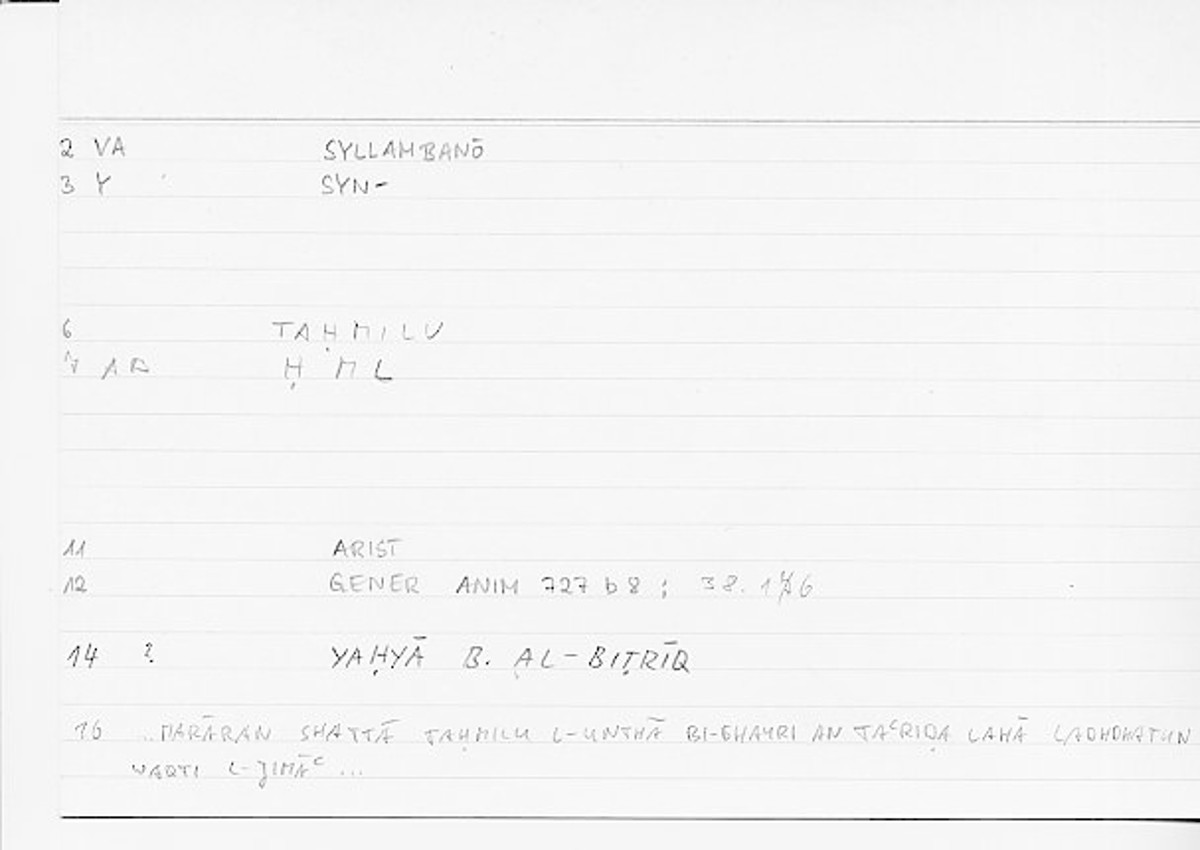 2 VA SYLLAMBANŌ
3 Y SYN-
6 TAḤMILU
7 AB Ḥ M L
11 ARIST
12 GENER ANIM 727 b 8 ; 38. 16
14 ? YAḤYĀ B. AL-BIṬRĪQ
16 ..MARĀRAN SHATTĀ TAḤMILU L-UNTHĀ BI-GHAYRI AN TAʿRIḌA LAHĀ LADHDHATUN
WAQTI L-JIMĀʿ ...